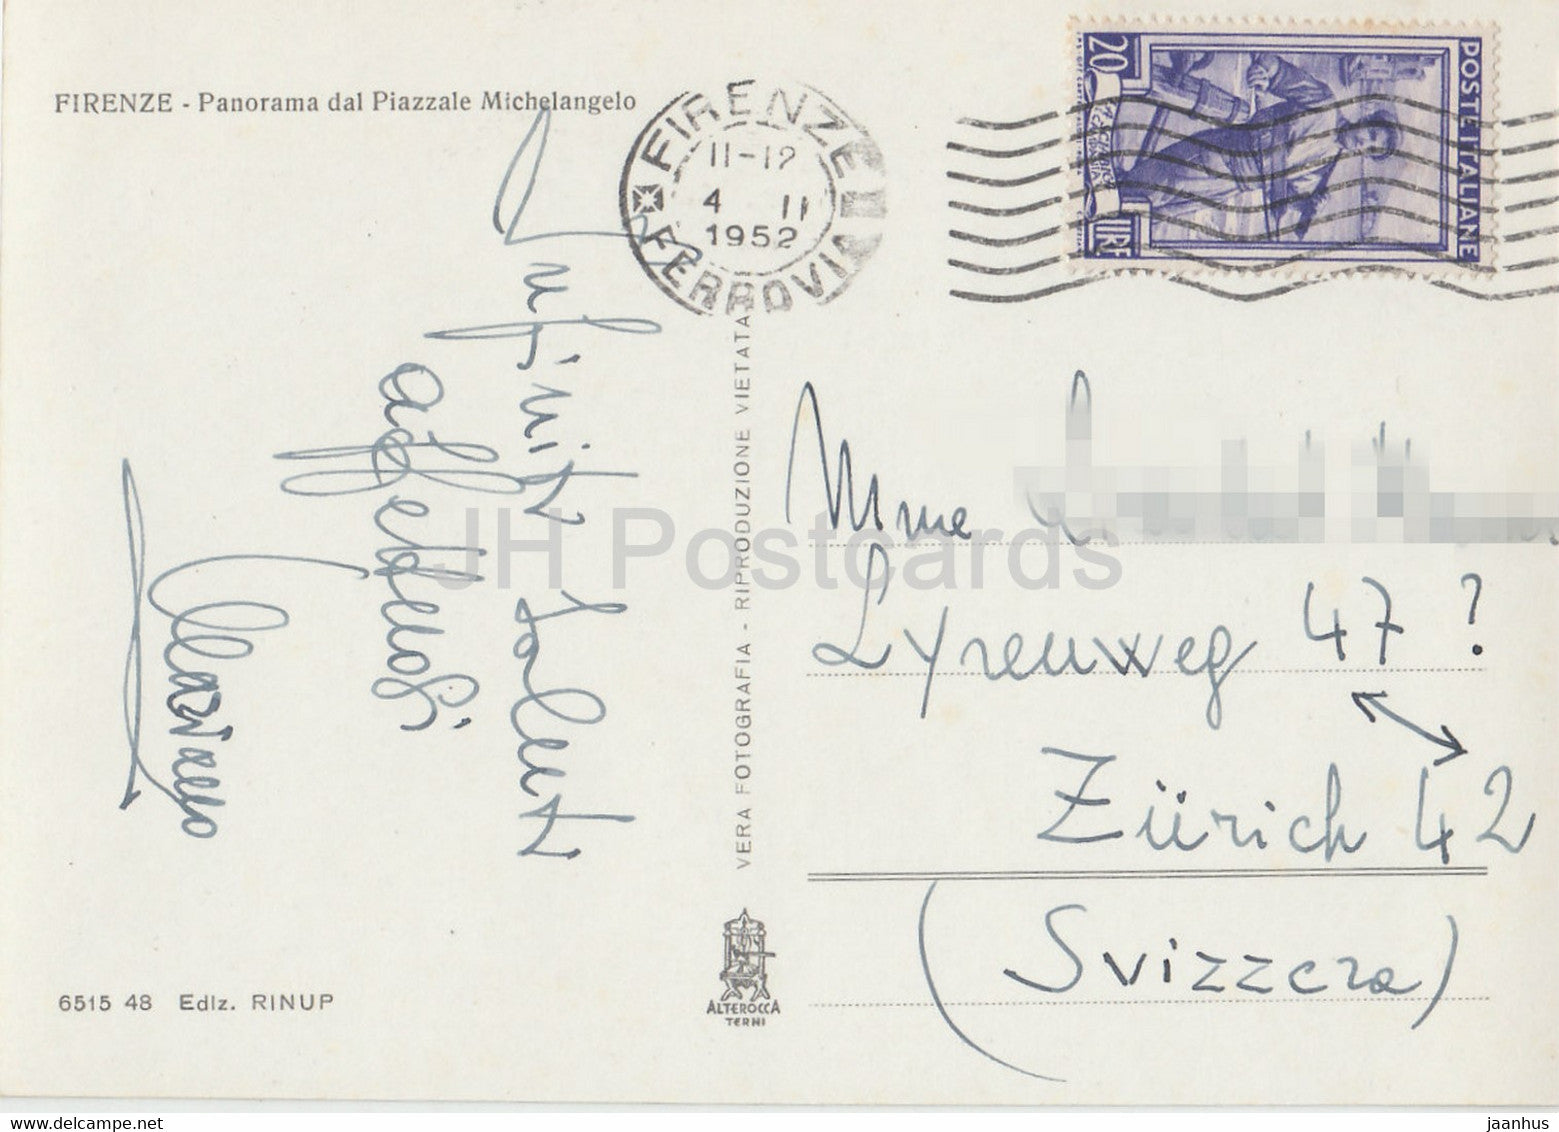 FIRENZE - Panorama dal Piazzale Michelangelo
FIRENZE
11-12
4 II
1952
FERROVIA
POSTE ITALIANE
20
LIRE
Infiniti saluti
affettuosi
VERA FOTOGRAFIA - RIPRODUZIONE VIETATA
Mme
Lyrenweg 47 ?
Zürich 42
(Svizzera)
6515 48 Ediz. RINUP
ALTEROCCA
TERNI
JH Postcards
www.delcampe.net
jaanhus